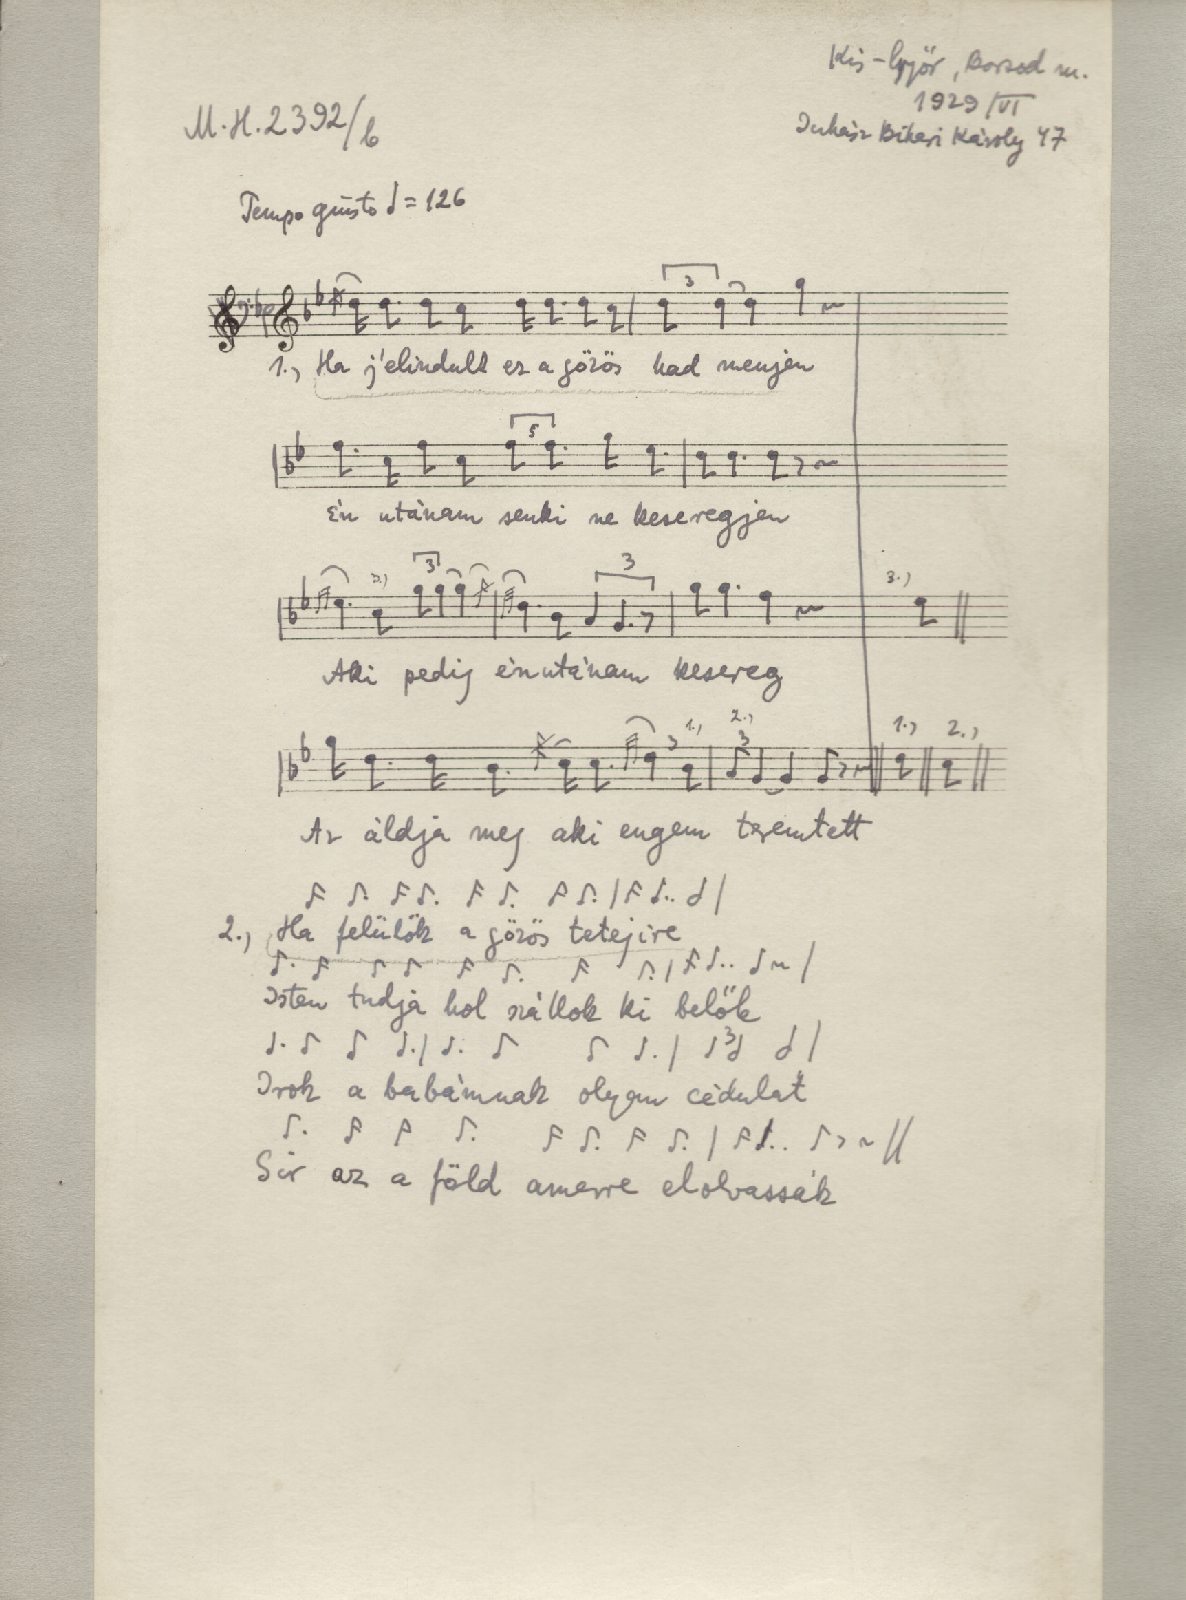 Kis-Győr, Borsod m.
1929/VI
Juhász Bihari Károly 47
M.H.2392/b
Tempo giusto = 126
3
1., Ha j'elindult ez a gőzös had menjen
5
Én utánam senki ne keseregjen
2.) 3 3 3.)
Aki pedig énutánam kesereg
3 1.) 2.) 3 1.) 2.)
Az áldja meg aki engem teremtett
2., Ha felülök a gőzös tetejire
Isten tudja hol szállok ki belőle
3
Irok a babámnak olyan cédulat
Sír az a föld amerre elolvassák